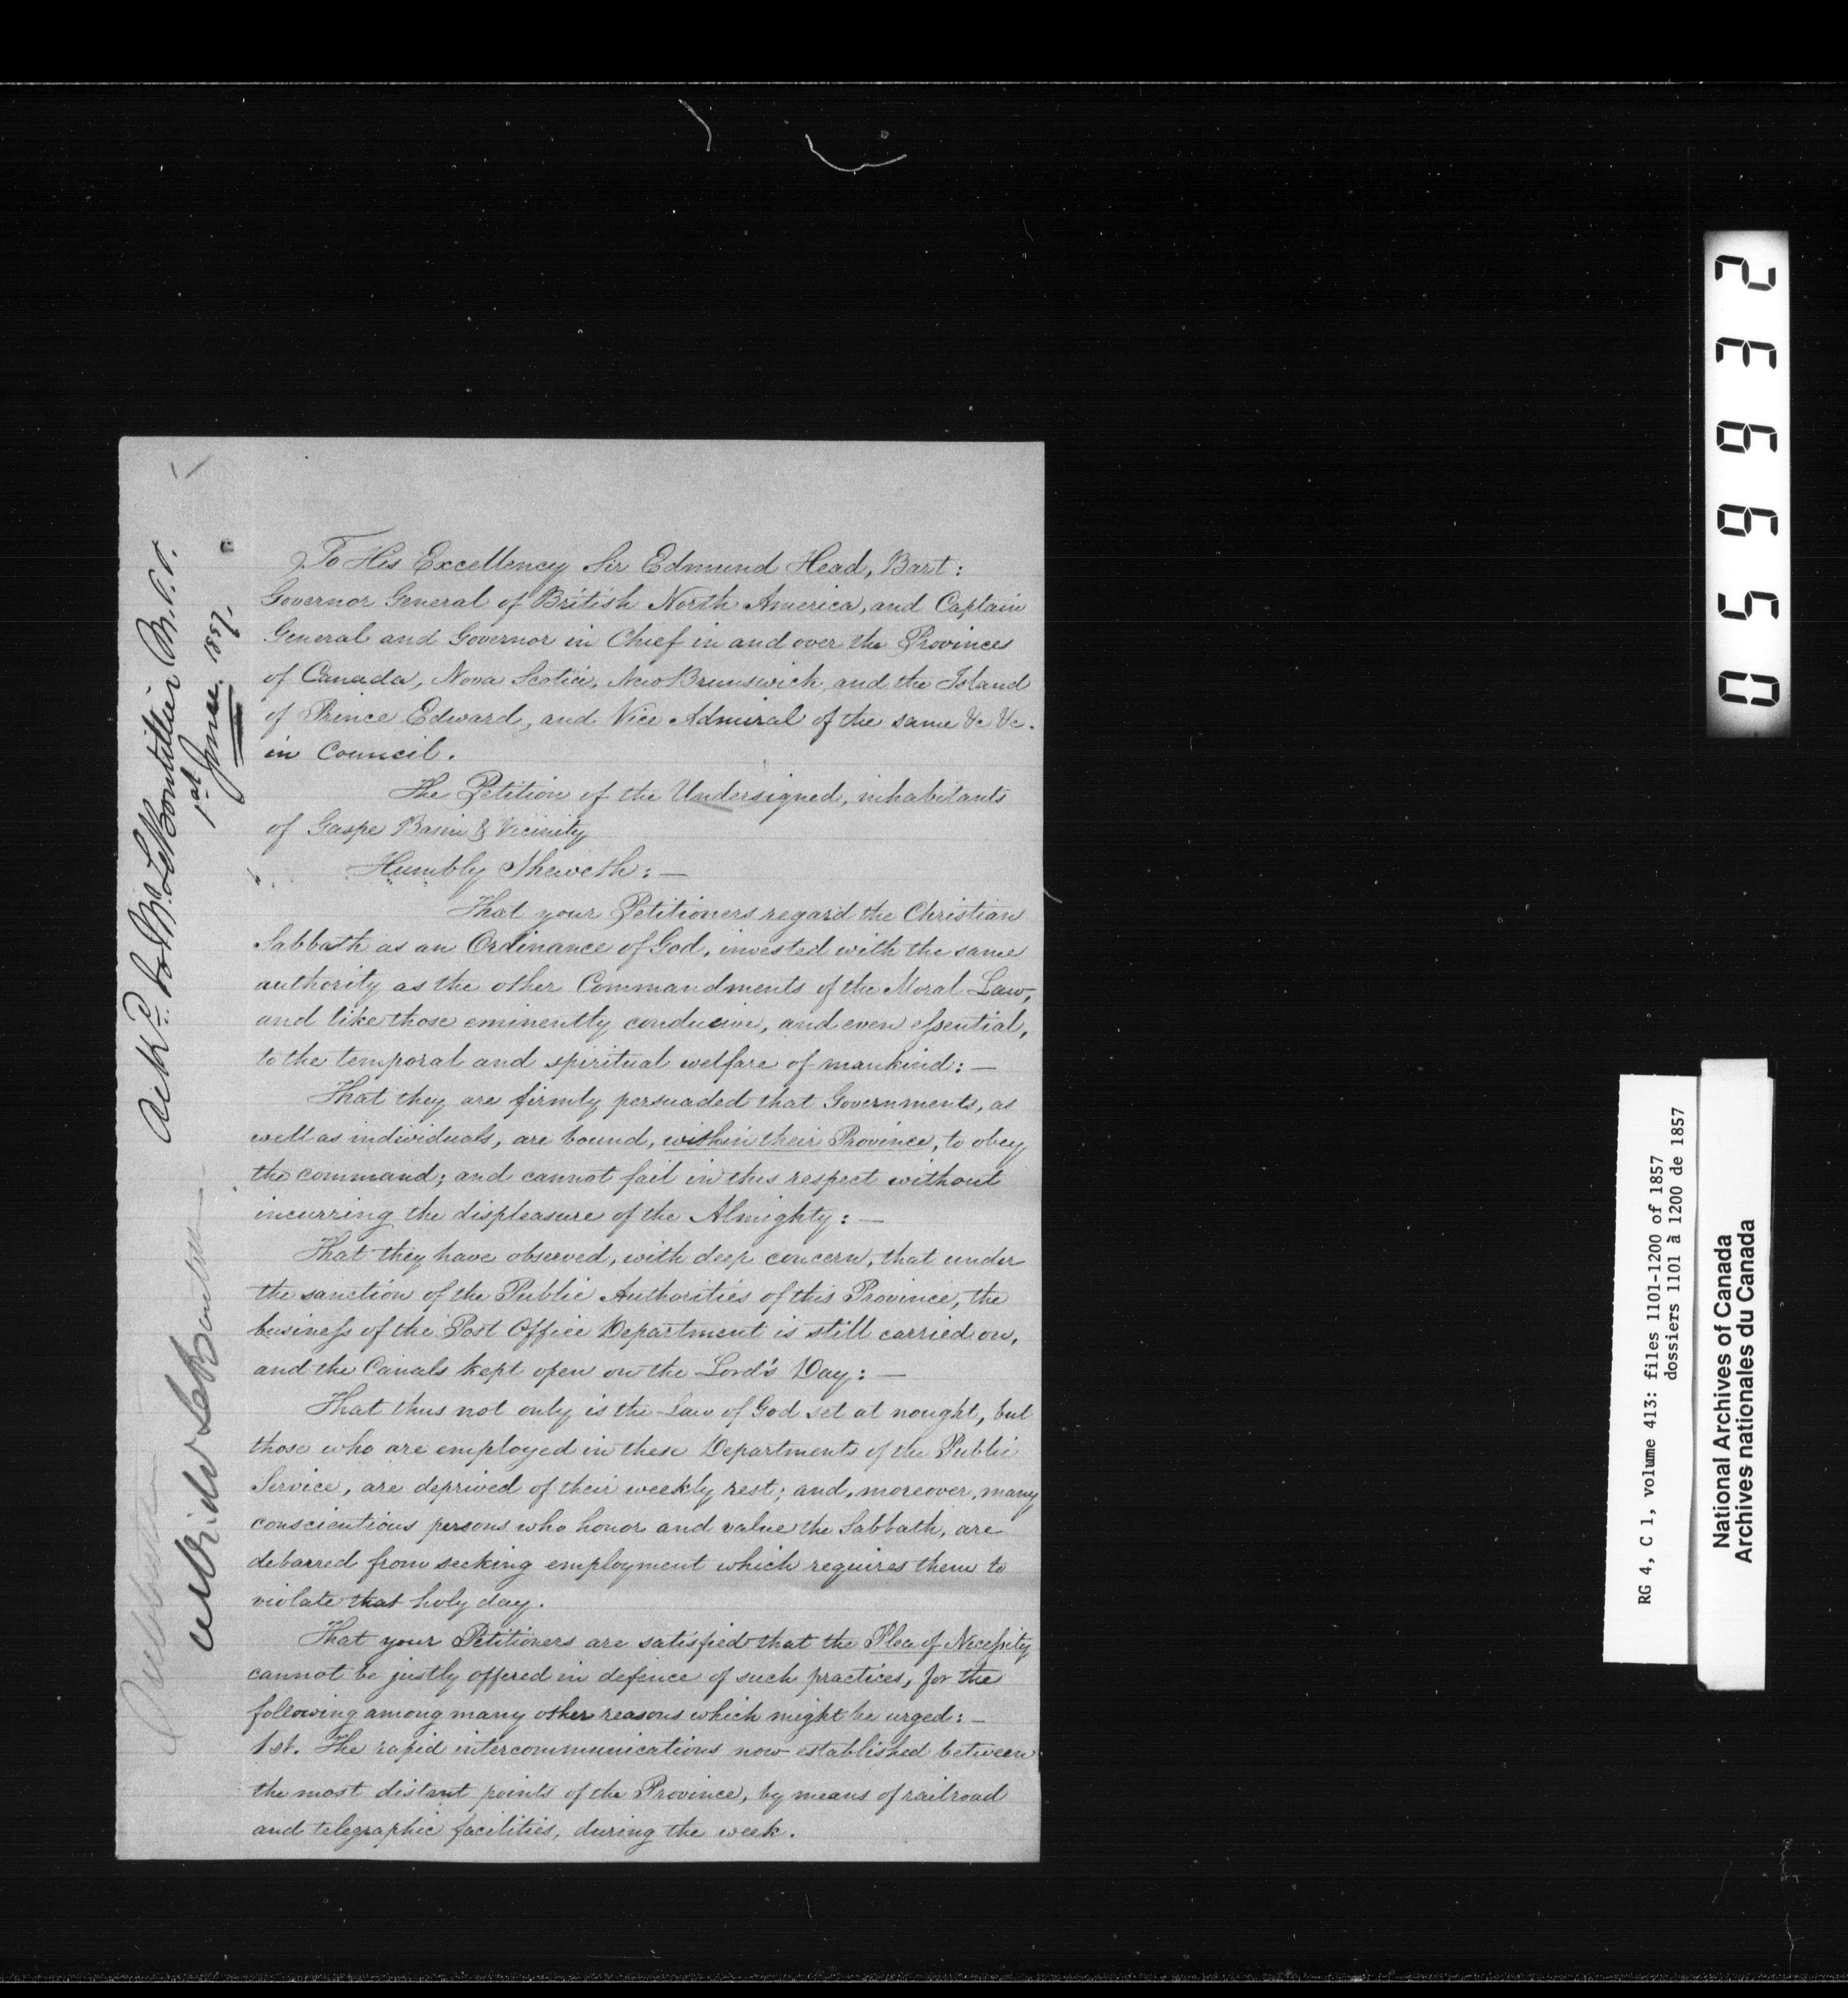 To His Excellency Sir Edmund Head, Bart:
Governor General of British North America, and Captain
General and Governor in Chief in and over the Provinces
of Canada, Nova Scotia, New Brunswick, and the Island
of Prince Edward, and Vice Admiral of the same &c &c.
in Council.
The Petition of the Undersigned, inhabitants
of Gaspe Basin & Vicinity
Humbly Sheweth: —
That your Petitioners regard the Christian
Sabbath as an Ordinance of God, invested with the same
authority as the other Commandments of the Moral Law,
and like those eminently conducive, and even essential,
to the temporal and spiritual welfare of mankind: —
That they are firmly persuaded that Governments, as
well as individuals, are bound, within their Province, to obey
the command; and cannot fail in this respect without
incurring the displeasure of the Almighty: —
That they have observed, with deep concern, that under
the sanction of the Public Authorities of this Province, the
business of the Post Office Department is still carried on,
and the Canals kept open on the Lord's Day: —
That thus not only is the Law of God set at nought, but
those who are employed in these Departments of the Public
Service, are deprived of their weekly rest; and, moreover, many
conscientious persons who honor and value the Sabbath, are
debarred from seeking employment which requires them to
violate that holy day.
That your Petitioners are satisfied that the Plea of Necessity
cannot be justly offered in defence of such practices, for the
following among many other reasons which might be urged: —
1st. The rapid intercommunications now established between
the most distant points of the Province, by means of railroad
and telegraphic facilities, during the week.
LeBoutillier M.P.P.
1st June 1857.
05 6632
RG 4, C 1, volume 413: files 1101-1200 of 1857
dossiers 1101 à 1200 de 1857
National Archives of Canada
Archives nationales du Canada